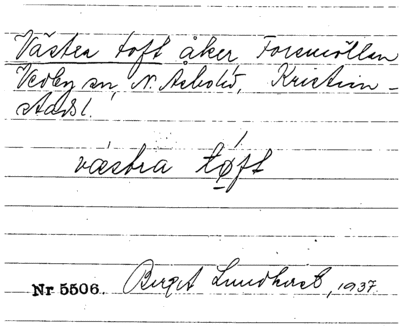 Västra toft åker Forsmöllan
Vedby sn, N. Åsbohd, Kristian-
stads l.
væstra tøft
Nr 5506. Birgit Lundkvist, 1937